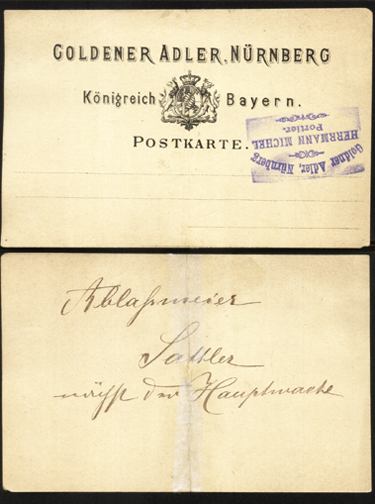 GOLDENER ADLER, NÜRNBERG
Königreich Bayern.
POSTKARTE.
Goldner Adler, Nürnberg
HERRMANN MICHEL
Portier.
Ablaßmeier
Sattler
nächst der Hauptwache